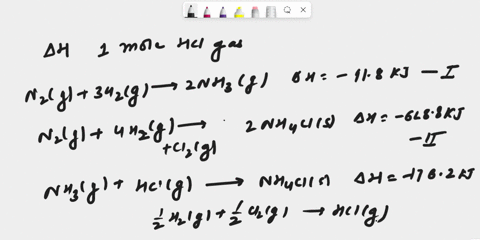 ΔH 1 mole HCl gas
N₂(g) + 3H₂(g) → 2NH₃(g) ΔH = -91.8 KJ - I
N₂(g) + 4H₂(g) → 2NH₄Cl(s) ΔH = -628.8 KJ
+Cl₂(g) - II
NH₃(g) + HCl(g) → NH₄Cl(s) ΔH = -176.2 KJ
½H₂(g) + ½Cl₂(g) → HCl(g)